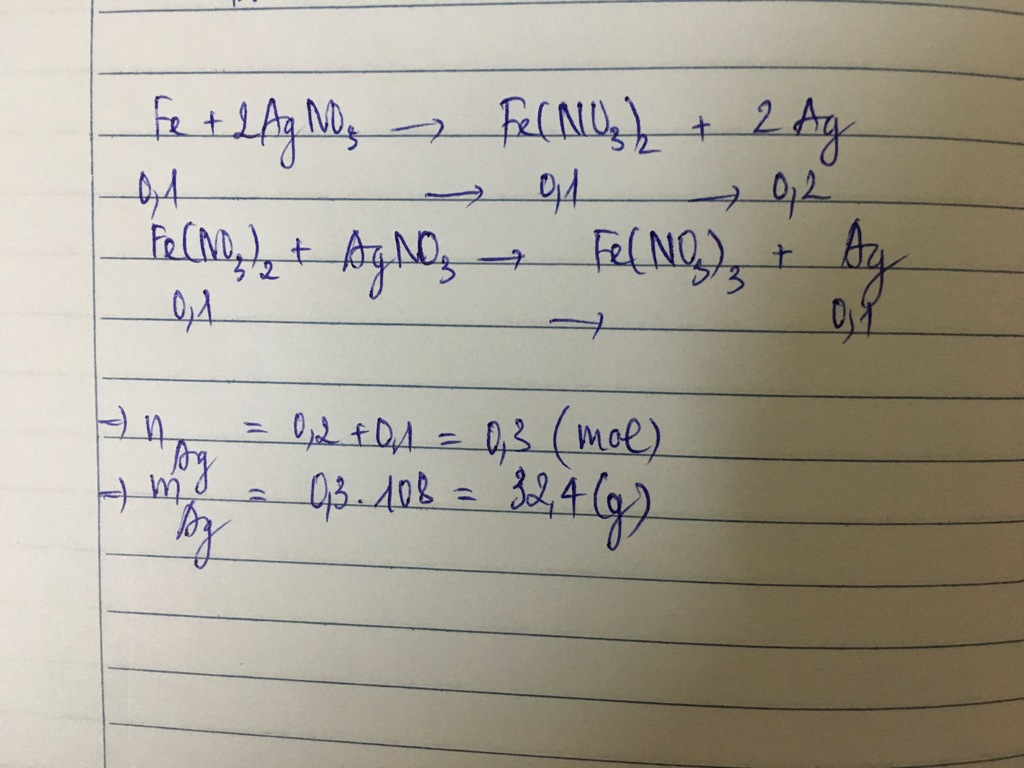 Fe + 2AgNO₃ → Fe(NO₃)₂ + 2Ag
0,1 → 0,1 → 0,2
Fe(NO₃)₂ + AgNO₃ → Fe(NO₃)₃ + Ag
0,1 → 0,1
=) n_Ag = 0,2 + 0,1 = 0,3 (mol)
=) m_Ag = 0,3 . 108 = 32,4 (g)